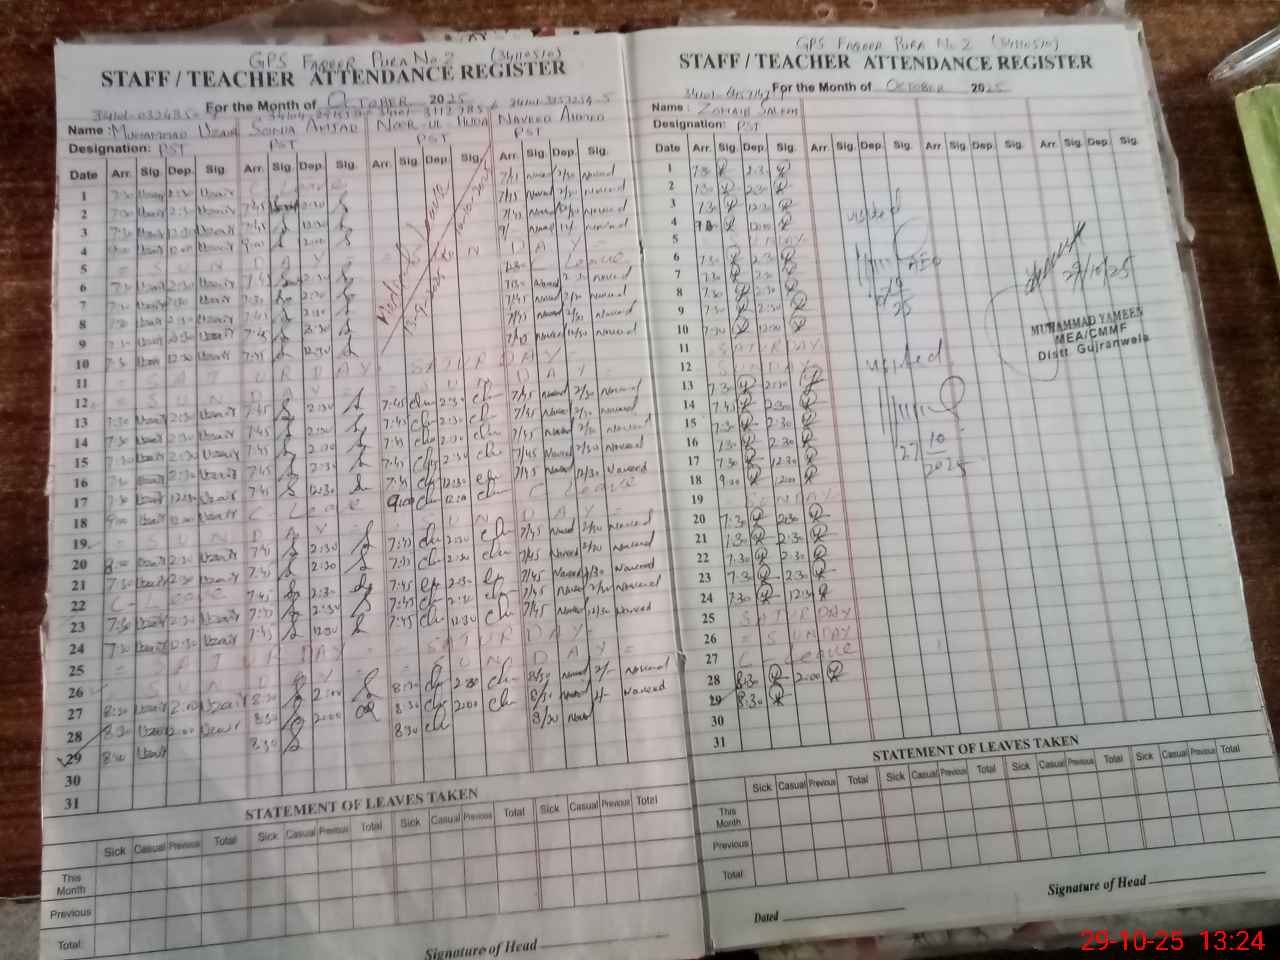 GPS FAQEER PURA No 2 (34110510)
STAFF / TEACHER ATTENDANCE REGISTER
For the Month of OCTOBER 2025
Name : MUHAMMAD UZAIR SONIA AMJAD NOOR-UL-HUDA NAVEED AHMED
Designation: PST PST PST PST
Date Arr. Sig. Dep. Sig. Arr. Sig. Dep. Sig. Arr. Sig. Dep. Sig. Arr. Sig. Dep. Sig.
1 7:30 Uzair 2:30 Uzair C Leave 7/45 naveed 2/30 naveed
2 7:30 Uzair 2:30 Uzair 7:45 2:30 7/45 naveed 2/30 naveed
3 7:30 Uzair 12:30 Uzair 7:45 12:30 7/45 naveed 12/30 naveed
4 9:00 Uzair 12:00 Uzair 9:00 naveed
5 = SUNDAY = DAY =
6 7:30 Uzair 2:30 Uzair 7:45 2:30 C Leave
7 7:30 Uzair 2:30 Uzair 7:30 2:30 naveed 2/30 naveed
8 7:30 Uzair 2:30 Uzair 7:45 2:30 7/45 naveed 2/30 naveed
9 7:30 Uzair 2:30 Uzair 7:45 2:30 7/45 naveed 2/30 naveed
10 7:30 Uzair 12:30 Uzair 7:45 12:30 naveed 12/30 naveed
11 = SATURDAY = SATURDAY =
12 = SUNDAY = SUNDAY =
13 7:30 Uzair 2:30 Uzair 7:45 2:30 7:45 2:30 7/45 naveed 2/30 naveed
14 7:30 Uzair 2:30 Uzair 7:45 2:30 7:45 2:30 7/45 naveed 2/30 naveed
15 7:30 Uzair 2:30 Uzair 7:45 2:30 7:45 2:30 7/45 naveed 2/30 naveed
16 7:30 Uzair 2:30 Uzair 7:45 2:30 7:45 2:30 7/45 Naveed 2/30 Naveed
17 7:30 Uzair 12:30 Uzair 7:45 12:30 7:45 12:30 7/45 Naveed 12/30 Naveed
18 9:00 Uzair 12:00 Uzair C Leave 9:00 12:00 C Leave
19 = SUNDAY = SUNDAY =
20 8:00 Uzair 2:30 Uzair 7:45 2:30 7:45 2:30 7/45 Naveed 2/30 Naveed
21 7:30 Uzair 2:30 Uzair 7:45 2:30 7:45 2:30 7/45 Naveed 2/30 Naveed
22 C-Leave 7:45 2:30 7:45 2:30 7/45 Naveed 2/30 Naveed
23 7:30 Uzair 2:30 Uzair 7:45 2:30 7:45 2:30 7/45 Naveed 2/30 Naveed
24 7:30 Uzair 12:30 Uzair 7:45 12:30 7:45 12:30 7/45 Naveed 12/30 Naveed
25 = SATURDAY = SATURDAY =
26 = SUNDAY = SUNDAY =
27 8:30 Uzair 2:00 Uzair 8:30 2:00 8:30 2:00 8/30 naveed 2/- naveed
28 8:30 Uzair 2:00 Uzair 8:30 2:00 8:30 2:00 8/30 naveed 2/- Naveed
29 8:30 Uzair 8:30 8:30 8/30 naveed
30
31
STATEMENT OF LEAVES TAKEN
Sick Casual Previous Total Sick Casual Previous Total Sick Casual Previous Total Sick Casual Previous Total
This Month
Previous
Total:
Signature of Head
GPS FAQEER PURA No 2 (34110510)
STAFF / TEACHER ATTENDANCE REGISTER
For the Month of OCTOBER 2025
Name : ZOHAIB SALEEM
Designation: PST
Date Arr. Sig. Dep. Sig. Arr. Sig. Dep. Sig. Arr. Sig. Dep. Sig. Arr. Sig. Dep. Sig.
1 7:30 2:30
2 7:30 2:30
3 7:30 12:30
4 12:00
5 = SUNDAY
6 7:30 2:30
7 7:30 2:30
8 7:30 2:30
9 7:30 2:30
10 7:30 12:00
11 = SATURDAY
12 = SUNDAY
13 7:30 2:30
14 7:45 2:30
15 7:30 2:30
16 7:30 2:30
17 7:30 12:30
18 9:00 12:00
19 = SUNDAY
20 7:30 2:30
21 7:30 2:30
22 7:30 2:30
23 7:30 2:30
24 7:30 12:30
25 SATURDAY
26 = SUNDAY
27 C - Leave
28 8:30 2:00
29 8:30
30
31
visited
visited
27 10 2025
29/10/25
MUHAMMAD YAMEEN
MEA/CMMF
Distt Gujranwala
STATEMENT OF LEAVES TAKEN
Sick Casual Previous Total Sick Casual Previous Total Sick Casual Previous Total Sick Casual Previous Total
This Month
Previous
Total:
Signature of Head
Dated
29-10-25 13:24